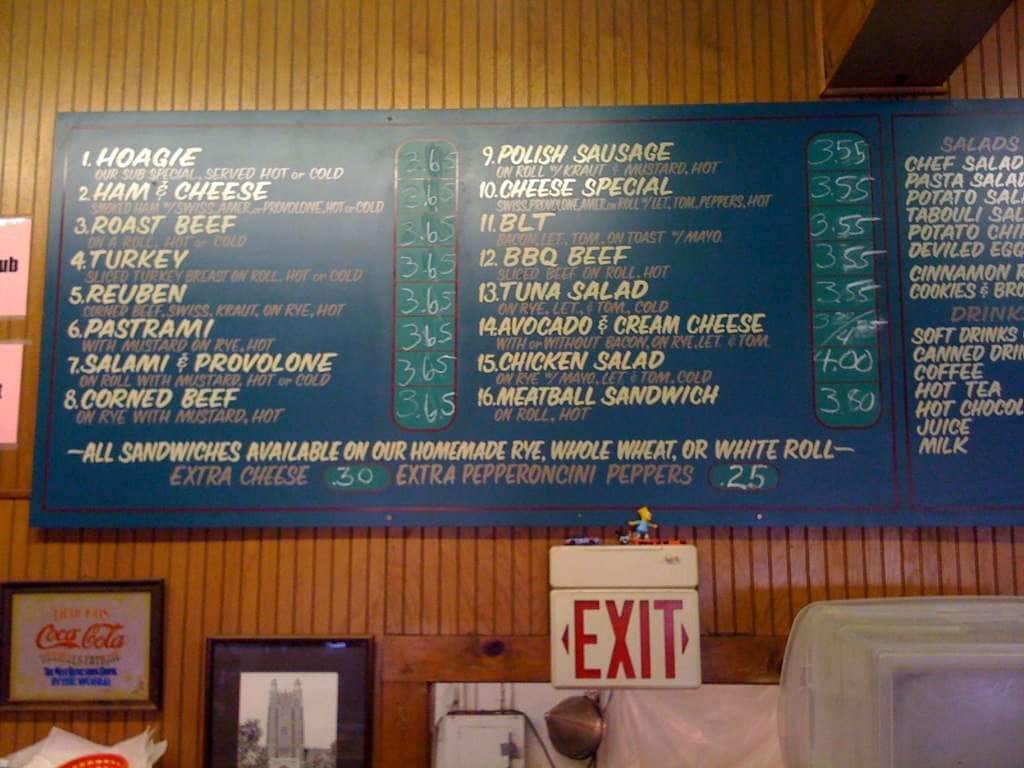 1. HOAGIE 3.65
OUR SUB SPECIAL, SERVED HOT or COLD
2. HAM & CHEESE 3.65
SMOKED HAM W/SWISS, AMER. or PROVOLONE, HOT or COLD
3. ROAST BEEF 3.65
ON A ROLL, HOT or COLD
4. TURKEY 3.65
SLICED TURKEY BREAST ON ROLL, HOT or COLD
5. REUBEN 3.65
CORNED BEEF, SWISS, KRAUT, ON RYE, HOT
6. PASTRAMI 3.65
WITH MUSTARD ON RYE, HOT
7. SALAMI & PROVOLONE 3.65
ON ROLL WITH MUSTARD, HOT or COLD
8. CORNED BEEF 3.65
ON RYE WITH MUSTARD, HOT
9. POLISH SAUSAGE 3.55
ON ROLL W/KRAUT & MUSTARD, HOT
10. CHEESE SPECIAL 3.55
SWISS, PROVOLONE, AMER. on ROLL W/LET., TOM., PEPPERS, HOT
11. BLT 3.55
BACON, LET., TOM., ON TOAST W/MAYO.
12. BBQ BEEF 3.55
SLICED BEEF ON ROLL, HOT
13. TUNA SALAD 3.55
ON RYE, LET. & TOM., COLD
14. AVOCADO & CREAM CHEESE
WITH or WITHOUT BACON, ON RYE, LET. & TOM.
15. CHICKEN SALAD 4.00
ON RYE W/MAYO, LET. & TOM., COLD
16. MEATBALL SANDWICH 3.80
ON ROLL, HOT
—ALL SANDWICHES AVAILABLE ON OUR HOMEMADE RYE, WHOLE WHEAT, OR WHITE ROLL—
EXTRA CHEESE .30 EXTRA PEPPERONCINI PEPPERS .25
SALADS
CHEF SALAD
PASTA SALAD
POTATO SAL
TABOULI SAL
POTATO CHI
DEVILED EGG
CINNAMON R
COOKIES & BRO
DRINK
SOFT DRINKS
CANNED DRIN
COFFEE
HOT TEA
HOT CHOCOL
JUICE
MILK
ub
Coca-Cola
EXIT